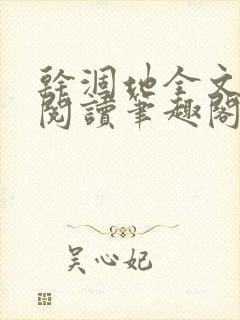 幹涸地全文
閱讀筆趣閣
吳心妃